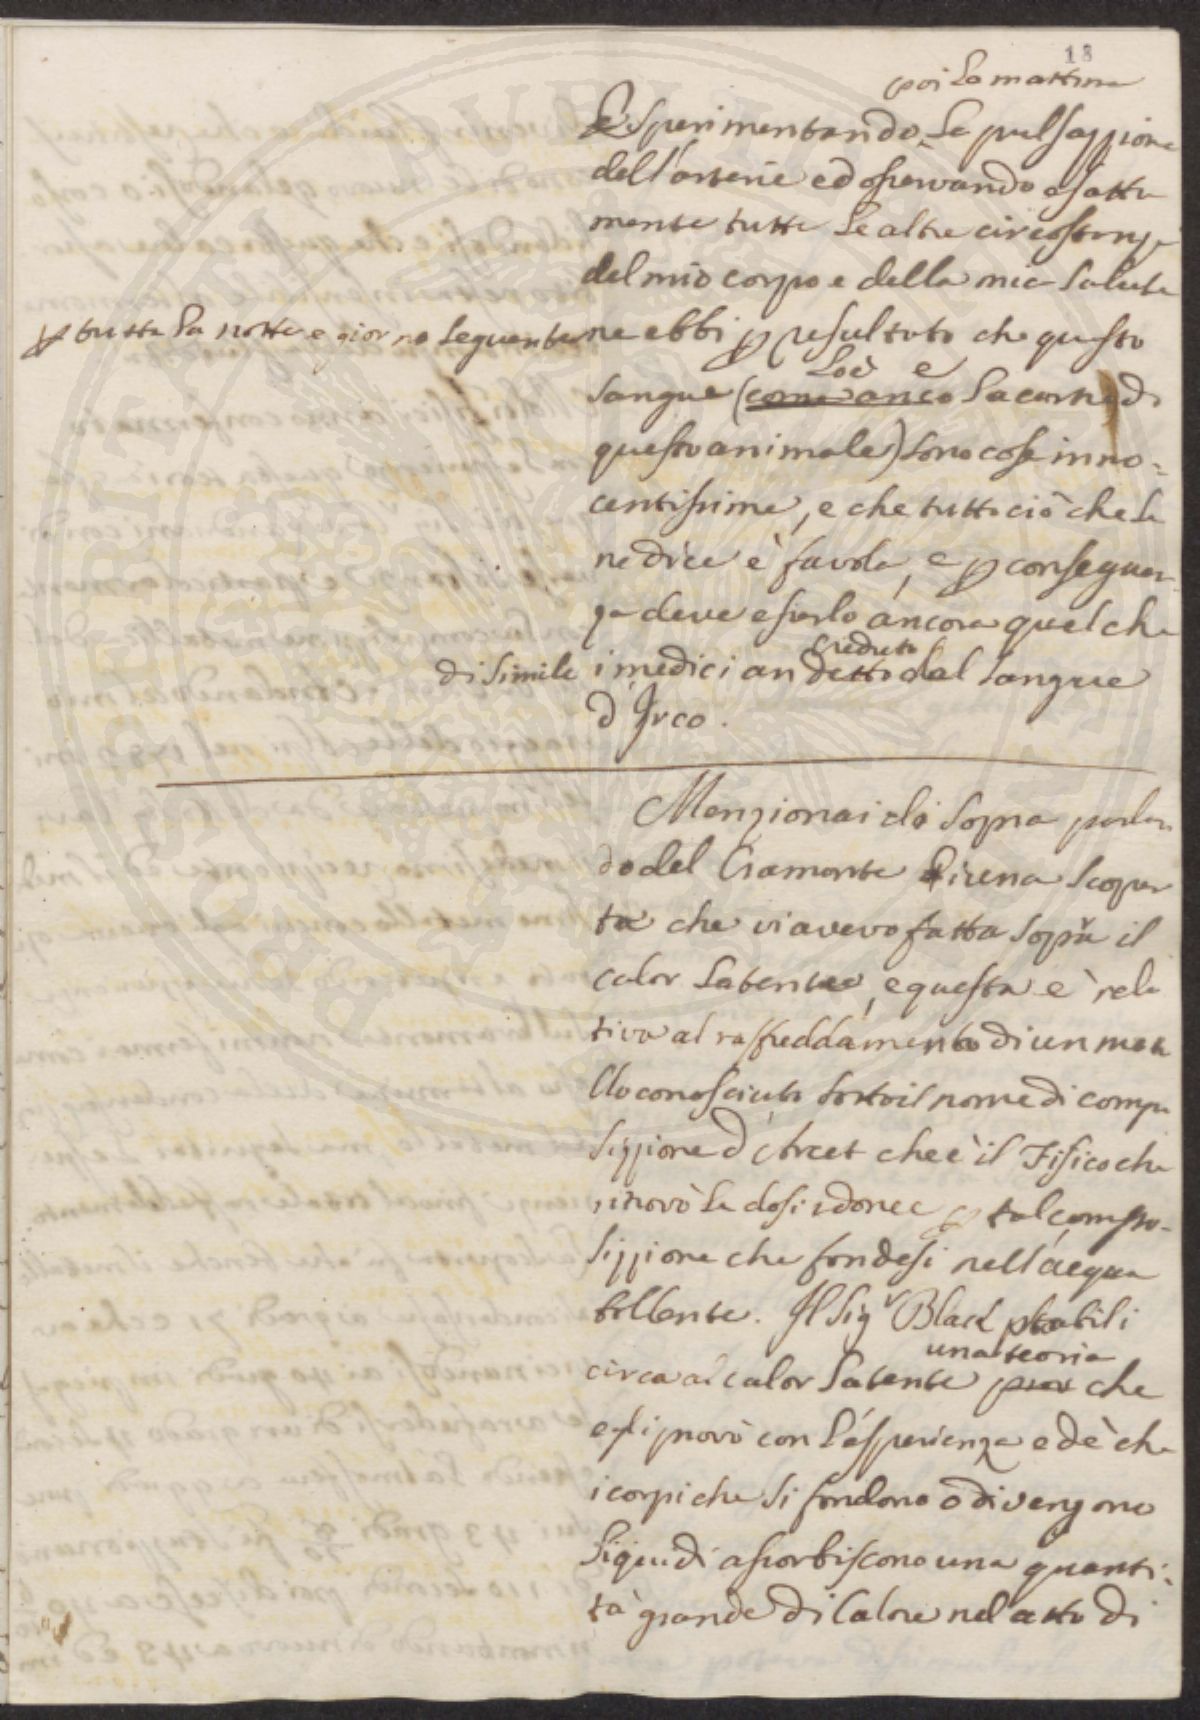 18
poi la mattina
Esperimentando la pulsazzione
dell'arterie ed osservando esatta
mente tutte le altre circostanze
del mio corpo e della mia salute
p tutta la notte e giorno seguente ne ebbi p resultato che questo
Loè e
sangue (come anco la carne di
questo animale) sono cose inno=
centissime, e che tutto ciò che se
ne dice è favola, e p conseguen-
za deve esserlo ancora quel che
creduto
di simile i medici an detto del sangue
d'Irco.
Menzionai di sopra parlan
do del Cramonte di una scoper
ta che vi avevo fatta sopra il
calor latente, e questa è rela
tiva al raffreddamento di un meta
llo conosciuto sotto il nome di compo
sizzione d'Arcet che è il Fisico che
trovò le dosi idonee p tal compo-
sizzione che fondesi nell'acqua
bollente. Il Sigr Black stabilì
una teoria
circa al calor latente che
egli provò con l'esperienza ed è che
i corpi che si fondono o divengono
liquidi assorbiscono una quanti-
tà grande di Calore nel atto di